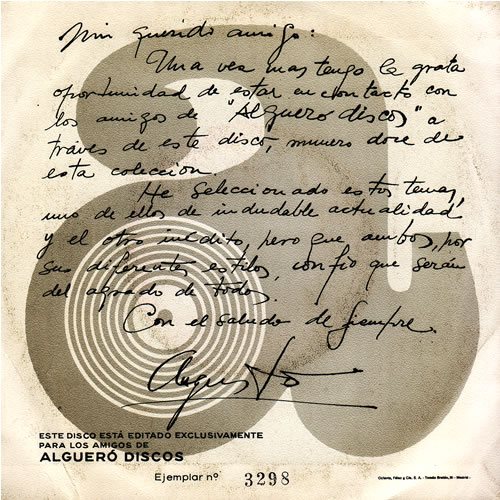 Mi querido amigo:
Una vez mas tengo la grata
oportunidad de estar en contacto con
los amigos de "Algueró discos" a
traves de este disco, numero doce de
esta colección.
He seleccionado estos temas,
uno de ellos de indudable actualidad
y el otro inédito, pero que ambos, por
sus diferentes estilos, confio que serán
del agrado de todos.
Con el saludo de siempre.
Augusto
ESTE DISCO ESTÁ EDITADO EXCLUSIVAMENTE
PARA LOS AMIGOS DE
ALGUERÓ DISCOS
Ejemplar nº 3298